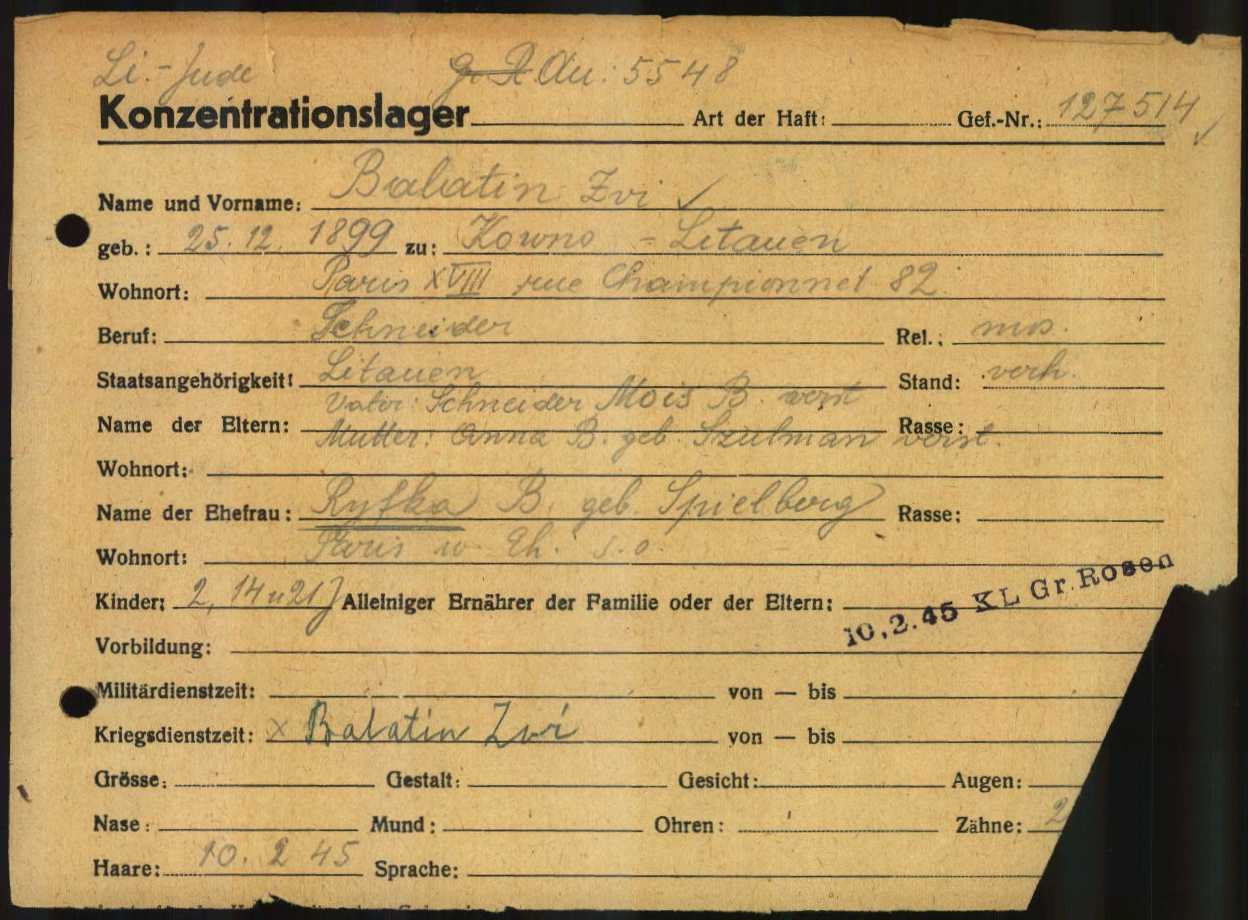 Li.-Jude g. R. Au: 5548
Konzentrationslager Art der Haft: Gef.-Nr.: 127514
Name und Vorname: Balatin Zvi
geb.: 25.12. 1899 zu: Kowno - Litauen
Wohnort: Paris XVIII rue Championnet 82
Beruf: Schneider Rel.: mos.
Staatsangehörigkeit: Litauen Stand: verh.
Vater: Schneider Mois B. verst
Name der Eltern: Rasse:
Mutter: Anna B. geb. Szulman verst.
Wohnort:
Name der Ehefrau: Ryfka B. geb. Spielberg Rasse:
Wohnort: Paris w. Eh. s.o.
Kinder: 2, 14 u 21 J Alleiniger Ernährer der Familie oder der Eltern:
10.2.45 KL Gr. Rosen
Vorbildung:
Militärdienstzeit: von — bis
Kriegsdienstzeit: x Balatin Zvi von — bis
Grösse: Gestalt: Gesicht: Augen:
Nase: Mund: Ohren: Zähne: 2
Haare: 10. 2 45 Sprache: